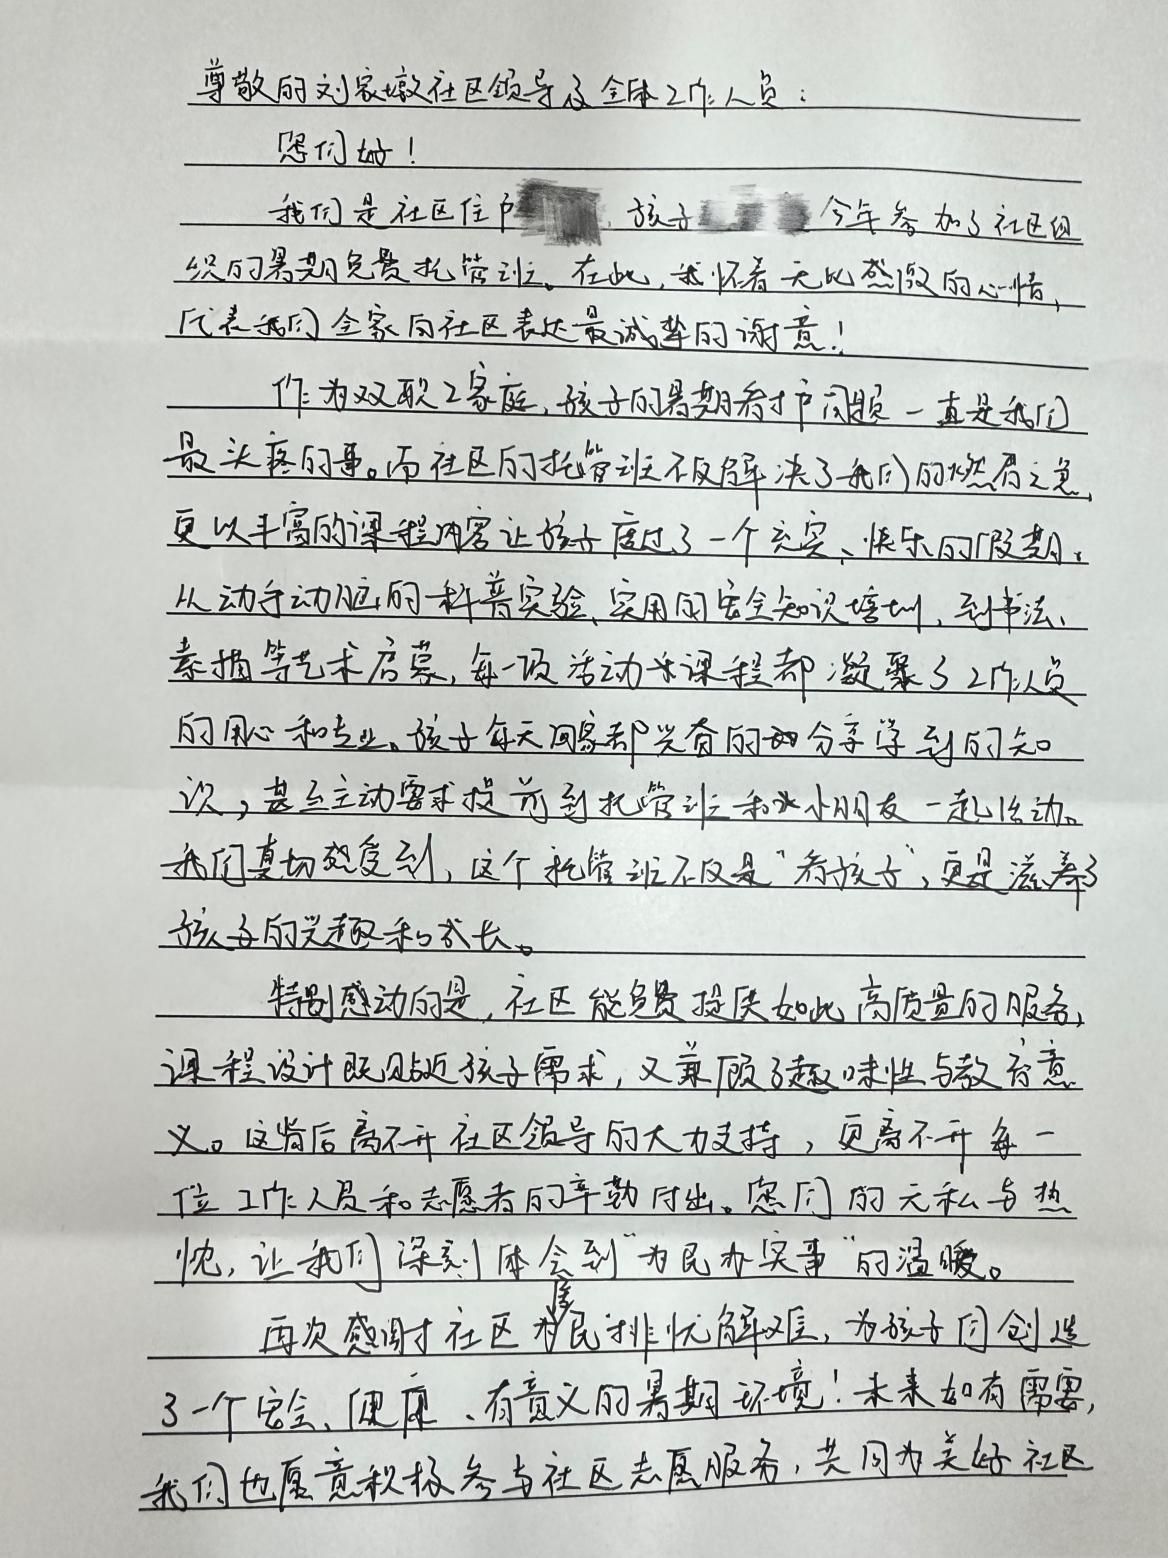 尊敬的刘家墩社区领导及全体工作人员：
您们好！
我们是社区住户，孩子今年参加了社区组
织的暑期免费托管班。在此，我怀着无比感激的心情，
代表我们全家向社区表达最诚挚的谢意！
作为双职工家庭，孩子的暑期看护问题一直是我们
最头疼的事。而社区的托管班不仅解决了我们的燃眉之急，
更以丰富的课程内容让孩子度过了一个充实、快乐的假期。
从动手动脑的科普实验、实用的安全知识培训，到书法、
素描等艺术启蒙，每一项活动课程都凝聚了工作人员
的用心和专业。孩子每天回家都兴奋的分享学到的知
识，甚至主动要求提前到托管班和小朋友一起活动。
我们真切感受到，这个托管班不仅是“看孩子”，更是滋养了
孩子的兴趣和成长。
特别感动的是，社区能免费提供如此高质量的服务，
课程设计既贴近孩子需求，又兼顾了趣味性与教育意
义。这背后离不开社区领导的大力支持，更离不开每一
位工作人员和志愿者的辛勤付出。您们的无私与热
忱，让我们深刻体会到“为民办实事”的温暖。
再次感谢社区为居民排忧解难，为孩子们创造
了一个安全、健康、有意义的暑期环境！未来如有需要，
我们也愿意积极参与社区志愿服务，共同为美好社区